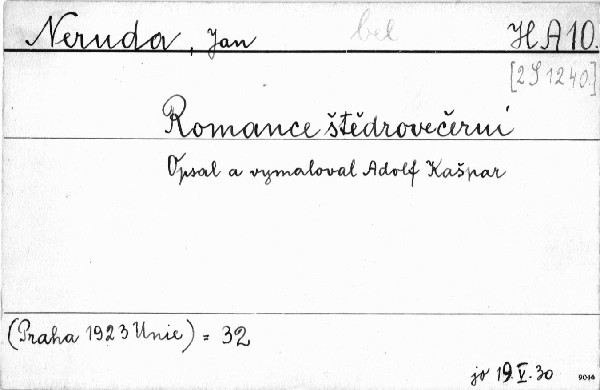 Neruda, Jan bel H A 10.
[2 S 1240.]
Romance štědrovečerní
Opsal a vymaloval Adolf Kašpar
(Praha 1923 Unie) = 32
jo 19.V.30 9044